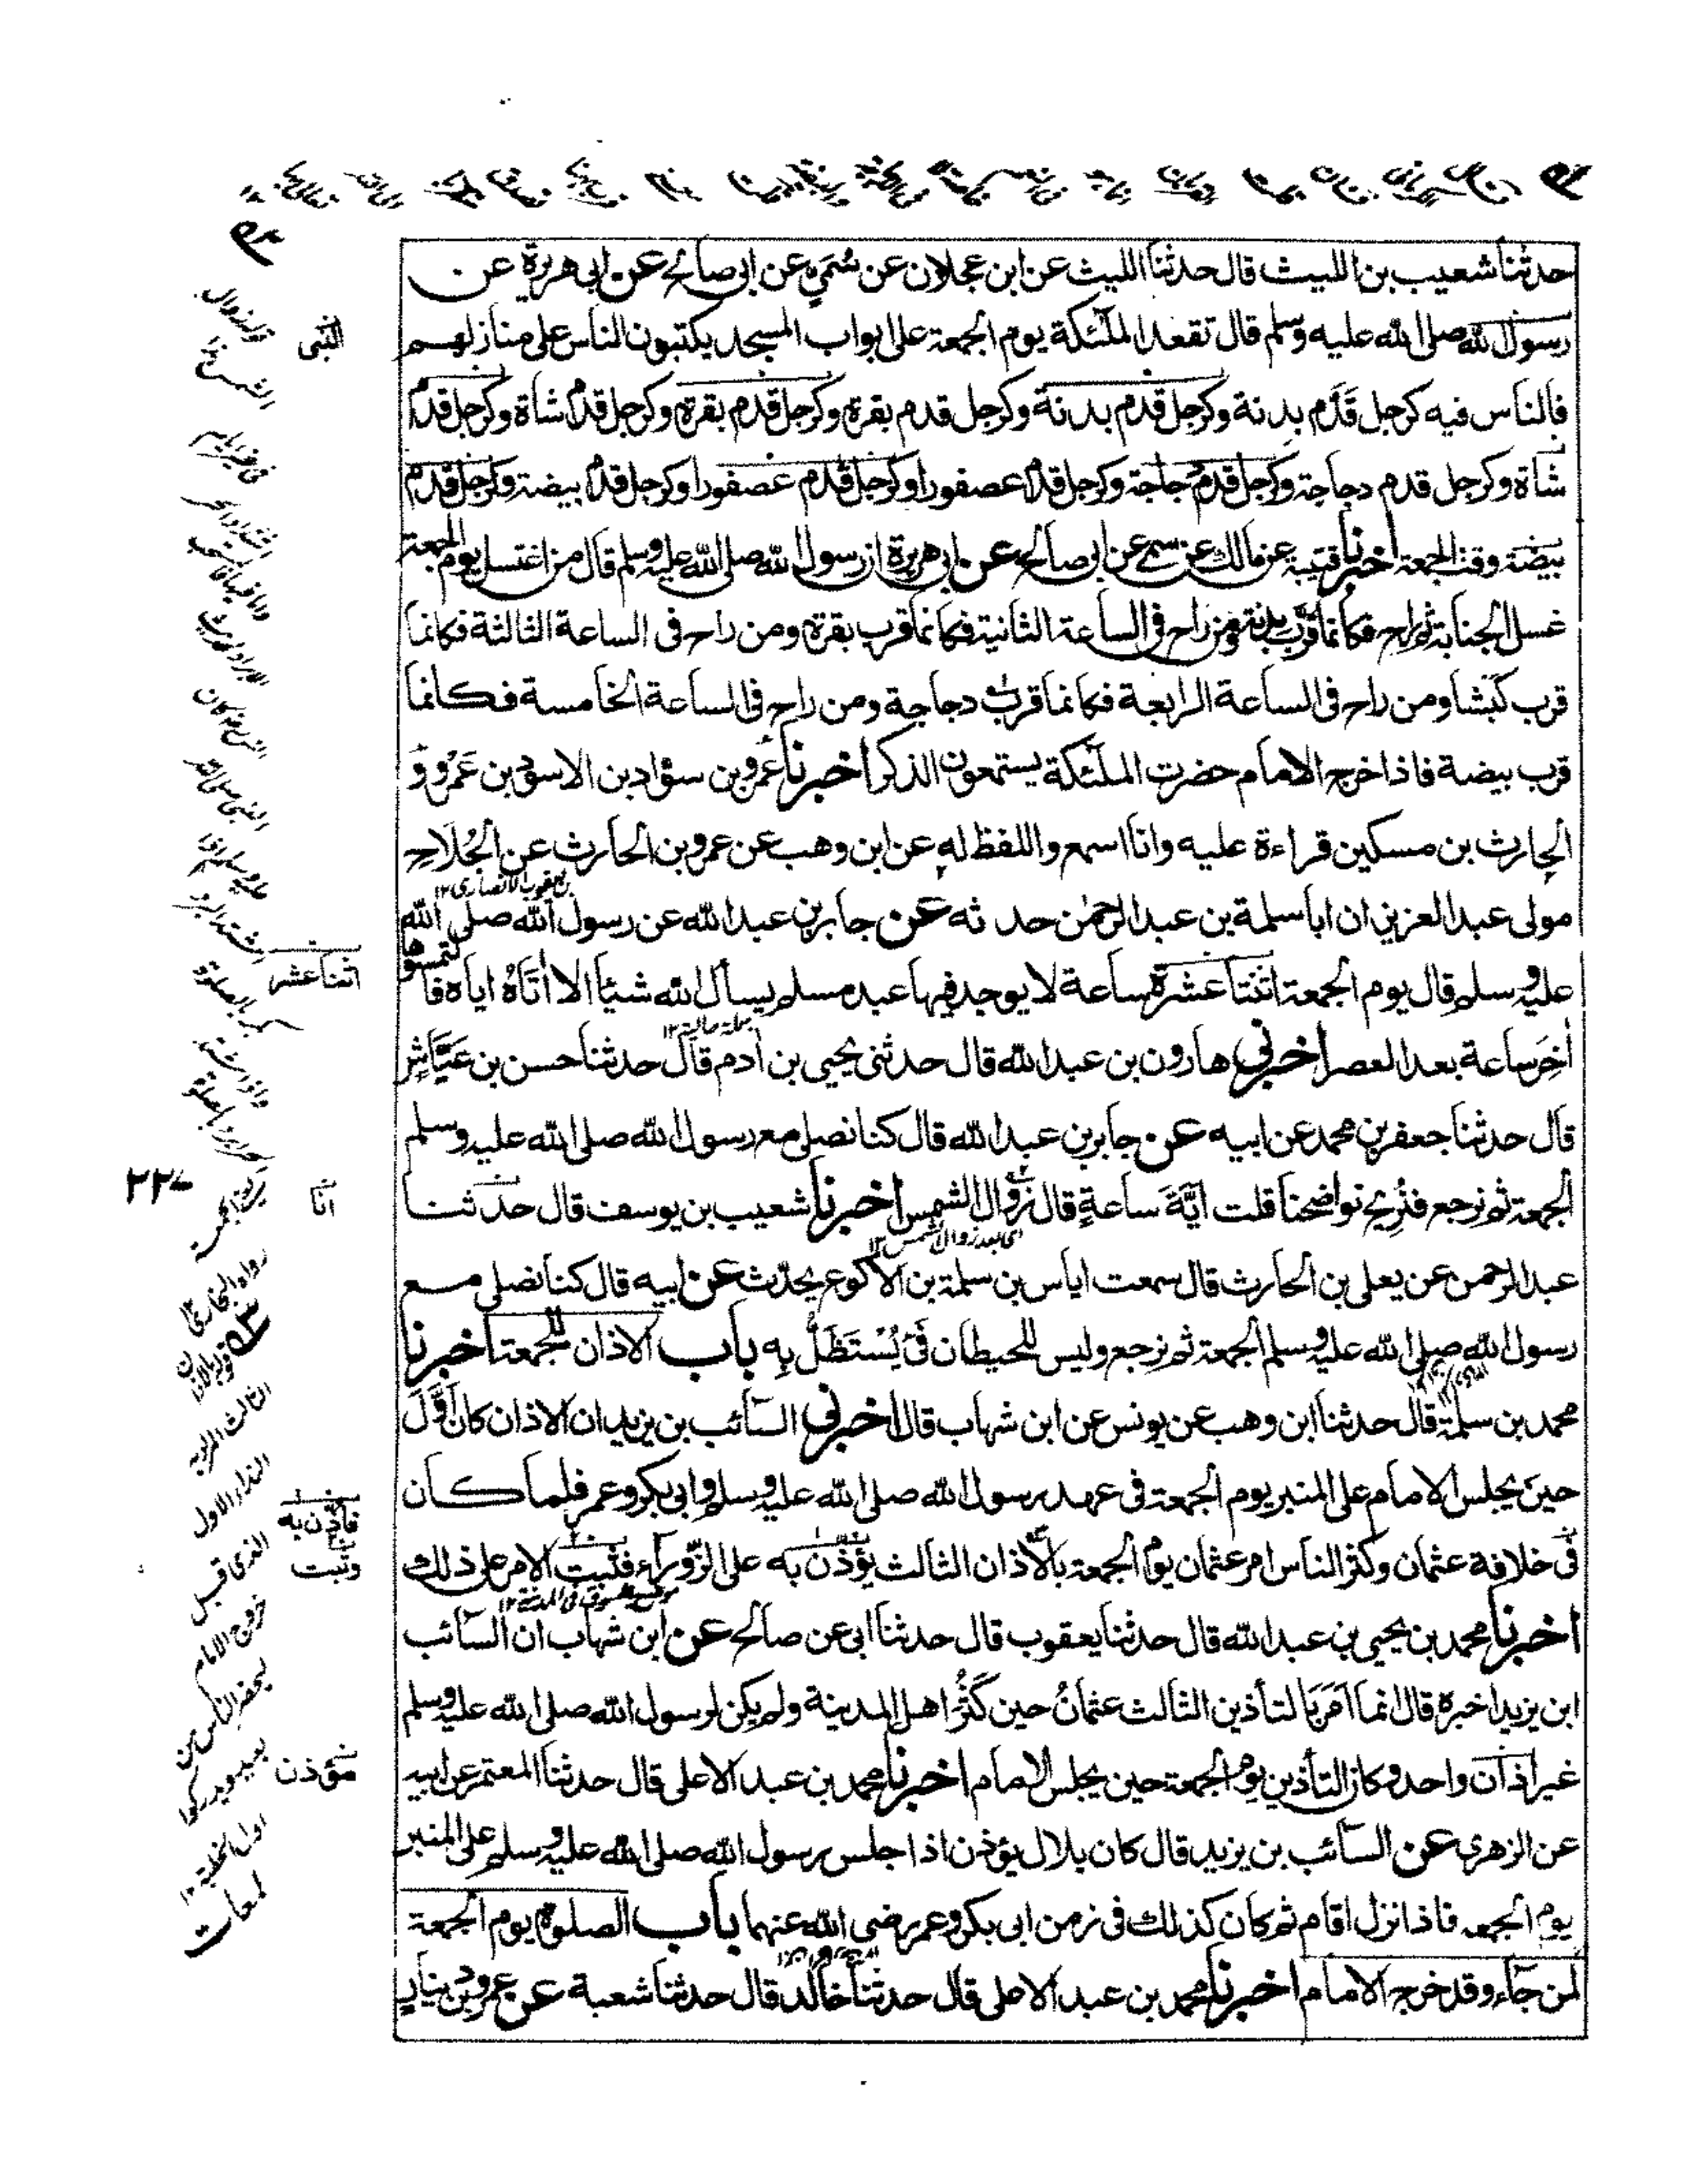 حدثنا شعيب بن الليث قال حدثنا الليث عن ابن عجلان عن سُمَيٍ عن ابى صالح عن ابى هريرة عن
رسول الله صلى الله عليه وسلم قال تقعد الملٰئكة يوم الجمعة على ابواب المسجد يكتبون الناس على منازلهم
فالناس فيه كرجل قَدَّم بدنة وكرجل قدم بدنة وكرجل قدم بقرة وكرجل قدم بقرة وكرجل قدم شاة وكرجل قدم
شاة وكرجل قدم دجاجة وكرجل قدم دجاجة وكرجل قدم عصفورا وكرجل قدم عصفورا وكرجل قدم بيضة وكرجل قدم
بيضة وقت الجمعة اخبرنا قتيبة عن مالك عن سمى عن ابى صالح عن ابى هريرة ان رسول الله صلى الله عليه وسلم قال من اغتسل يوم الجمعة
غسل الجنابة ثم راح فكانما قرب بدنة ومن راح فى الساعة الثانية فكانما قرب بقرة ومن راح فى الساعة الثالثة فكانما
قرب كبشا ومن راح فى الساعة الرابعة فكانما قرب دجاجة ومن راح فى الساعة الخامسة فكانما
قرب بيضة فاذا خرج الامام حضرت الملٰئكة يستمعون الذكر اخبرنا عمرو بن سواد بن الاسود بن عَمْرٍو و
الحارث بن مسكين قراءة عليه وانا اسمع واللفظ له عن ابن وهب عن عمرو بن الحارث عن الجُلَاحِ
بن يعقوب الانصارى ١٢
مولى عبد العزيز ان ابا سلمة بن عبد الرحمٰن حدثه عن جابر بن عبد الله عن رسول الله صلى الله
عليه وسلم قال يوم الجمعة اثنتا عشرة ساعة لا يوجد فيها عبد مسلم يسأل الله شيئا الا اٰتَاهُ اياه فالتمسوها
جملة حالية ١٢
اٰخِرَ ساعة بعد العصر اخبرنى هارون بن عبد الله قال حدثنى يحيى بن اٰدم قال حدثنا حسن بن عَيَّاشٍ
قال حدثنا جعفر بن محمد عن ابيه عن جابر بن عبد الله قال كنا نصلى مع رسول الله صلى الله عليه وسلم
الجمعة ثم نرجع فنُرِيْحُ نواضحنا قلت اَيَّةَ ساعةٍ قال زوال الشمس اخبرنا شعيب بن يوسف قال حدثنا
اى بعد زوال الشمس ١٢
عبد الرحمن عن يعلى بن الحارث قال سمعت اياس بن سلمة بن الاكوع يحدّث عن ابيه قال كنا نصلى مع
رسول الله صلى الله عليه وسلم الجمعة ثم نرجع وليس للحيطان فَىْءٌ يُسْتَظَلُّ بِه باب الاذان للجمعة اخبرنا
محمد بن سلمة قال حدثنا ابن وهب عن يونس عن ابن شهاب قال اخبرنى السائب بن يزيد ان الاذان كان اَوَّلُ
حين يجلس الامام على المنبر يوم الجمعة فى عهد رسول الله صلى الله عليه وسلم وابى بكر وعمر فلما كان
فى خلافة عثمان وكثر الناس امر عثمان يوم الجمعة بالاذان الثالث يؤذّن به على الزَّوراء فثبت الامر على ذلك
موضع بالسوق فى المدينة ١٢
اخبرنا محمد بن يحيى بن عبد الله قال حدثنا يعقوب قال حدثنا ابى عن صالح عن ابن شهاب ان السائب
ابن يزيد اخبره قال انما اَمَرَ بالتأذين الثالث عثمانُ حين كَثُرَ اهل المدينة ولم يكن لرسول الله صلى الله عليه وسلم
غير اذان واحد وكان التأذين يوم الجمعة حين يجلس الامام اخبرنا محمد بن عبد الاعلى قال حدثنا المعتمر عن ابيه
عن الزهرى عن السائب بن يزيد قال كان بلال يؤذن اذا جلس رسول الله صلى الله عليه وسلم على المنبر
يوم الجمعة فاذا نزل اقام ثم كان كذلك فى زمن ابى بكر وعمر رضى الله عنهما باب الصلوة يوم الجمعة
لمن جاء وقد خرج الامام اخبرنا محمد بن عبد الاعلى قال حدثنا خالد قال حدثنا شعبة عن عمرو بن دينار
النبى
اثنا عشر
انا
فاذّن به
وثبت
مؤذن
٢٢٧
النبى صلى الله
عليه وسلم اذا
رواه البخارى
الثالث
النداء الاول
الذى قبل
خروج الامام
ليحضر الناس
لمعات